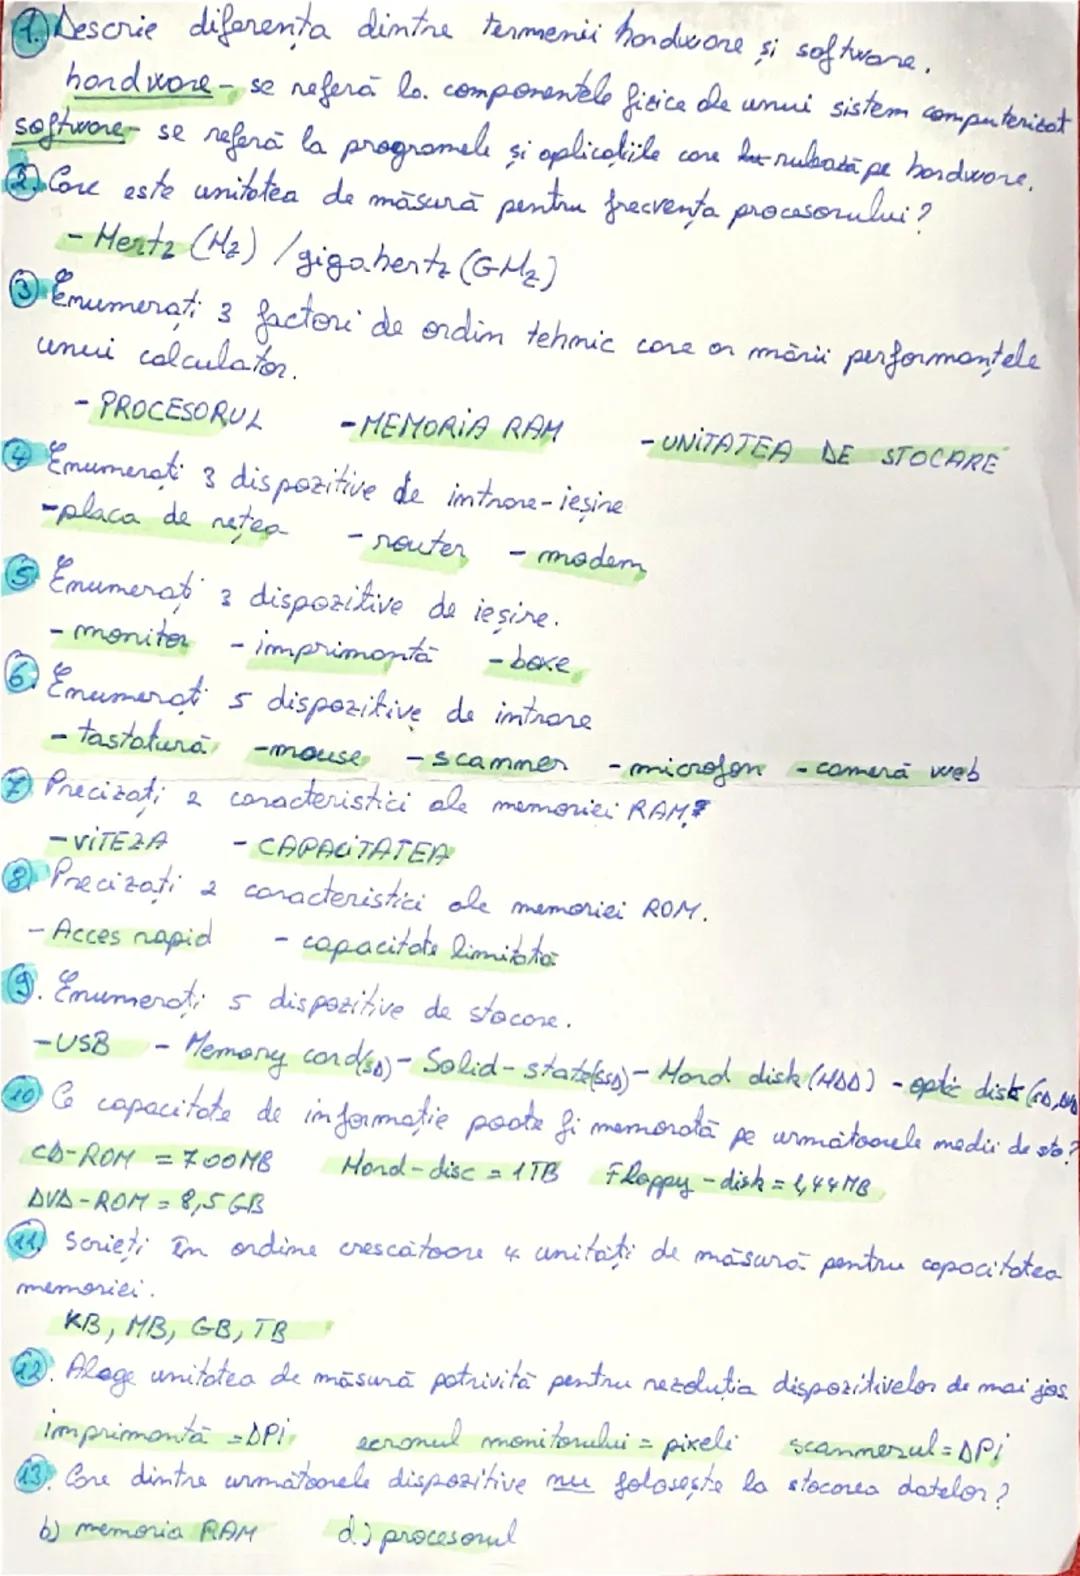 1. Descrie diferența dintre termenii hardware și software.
hardware - se referă la componentele fizice ale unui sistem computerizat
software - se referă la programele și aplicațiile care rulează pe hardware.
2. Care este unitatea de măsură pentru frecvența procesorului?
- Hertz (Hz) / gigahertz (GHz)
3 Enumerați 3 factori de ordin tehnic care ar mării performanțele
unui calculator.
- PROCESORUL - MEMORIA RAM - UNITATEA DE STOCARE
4 Enumerați 3 dispozitive de intrare-ieșire
- placa de rețea - router - modem
5 Enumerați 3 dispozitive de ieșire.
- monitor - imprimantă - boxe
6. Enumerați 5 dispozitive de intrare
- tastatură - mouse - scanner - microfon - cameră web
7 Precizați 2 caracteristici ale memoriei RAM?
- VITEZA - CAPACITATEA
8. Precizați 2 caracteristici ale memoriei ROM.
- Acces rapid - capacitate limitată
9. Enumerați 5 dispozitive de stocare.
- USB - Memory card(SD) - Solid-state(SSD) - Hard disk (HDD) - optic disk (CD, DVD
10 Ce capacitate de informație poate fi memorată pe următoarele medii de sto?
CD-ROM = 700MB Hard-disc = 1TB Floppy-disk = 1,44MB
DVD-ROM = 8,5 GB
11. Scrieți în ordine crescătoare 4 unități de măsură pentru capacitatea
memoriei.
KB, MB, GB, TB
12. Alege unitatea de măsură potrivită pentru rezoluția dispozitivelor de mai jos
imprimantă = DPi ecranul monitorului = pixeli scannerul = DPi
13. Care dintre următoarele dispozitive nu folosește la stocarea datelor?
b) memoria RAM d) procesorul